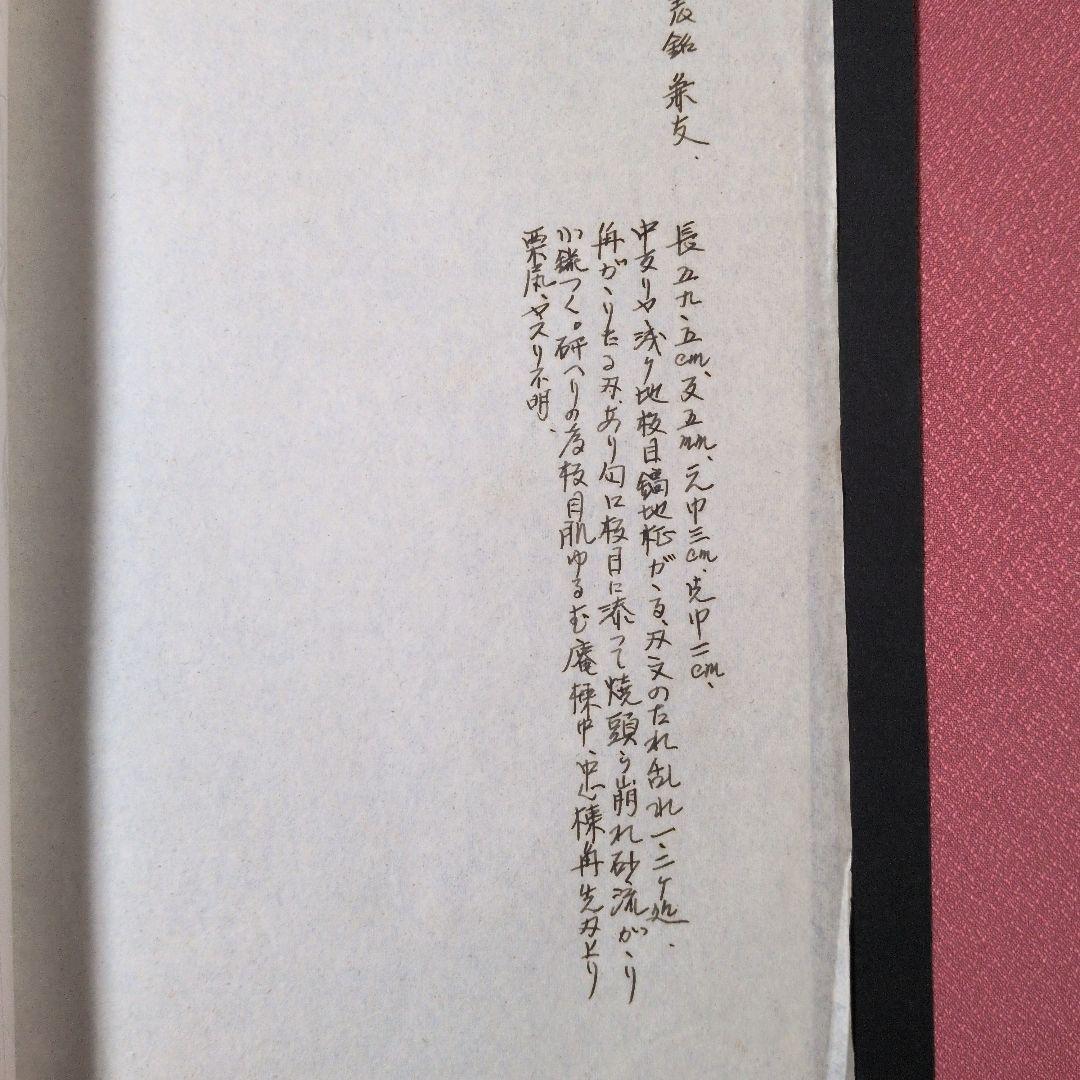 表銘 兼友、
長五九、五cm、反五mm、元巾三cm、先巾二cm、
中反りや、浅ク地板目鎬地柾がゝる、刃文のたれ乱れ一、二ヶ処、
角がゝりたる刃、あり匂口板目に添って焼頭う崩れ砂流がゝり
小錵つく。研へりの為板目肌ゆるむ庵棟中、忠棟角先刃上り
栗尻、ヤスリ不明、